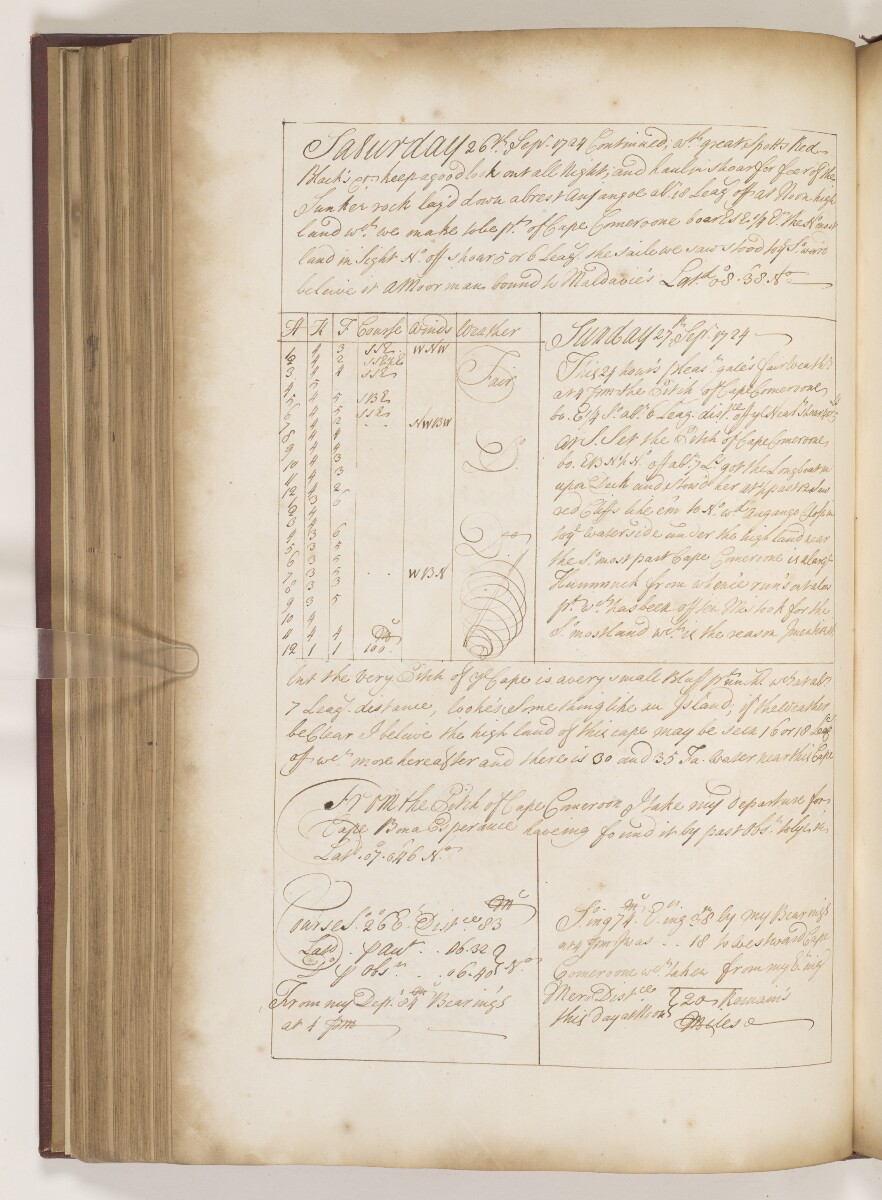 Saturday 26th Sepr. 1724 Continued; wth great Spotts Red
Black's & keep a good look out all Night, and haul in shoar for fear of the
Sunken rock lay'd down abrest Anjangoe abt. 18 Leag. off at Noon high
land wch. we make to be pt. of Cape Comeroone boar ESE ¼ E the No.most
land in sight No. off shoar 5 or 6 Leag. the saile we saw stood to ye So.ward
beleive it a Moor man bound to Maldavie's Latd. 08.38 No.
H K F Course Winds Weather
Sunday 27th Sepr. 1724
1 4 3 SSE WNW Fair
2 4 2
3 4 4 SSE
4 5
5 4 5 SBE
6 4 5 SSE
7 4 2 .. NWBW
8 4 4
9 4 4
10 4 3
11 4 3
12 4 2
7 3 5 .. WBN
8 3 3
9 3 5
10 4
11 4 4
12 1 1 100
This 24 hours pleast. gale's fair Weathr.
at 4 pm the Pitch of Cape Comeroone
bo. E ¼ So. abt. 6 Leag. distce. off ye Neast Shoar
at S. Set the Pitch of Cape Comeroone
bo. EBN ½ No. off abt. 7 Ls. got the Longboat in
upon Deck and stow'd her
red Cliffs like em to No. wth Close in
to ye waterside under the high land near
the So.most part Cape Comeroone is a larg
Hummock from whence run's out a low
pt. wch. has been often Mistook for the
So.most land wch. is the reason
but the very Pitch of ye Cape is a very small Bluff pt. wch at abt.
7 Leag. distance, looke's something like an Island, if the weather
be Clear I beleive the high land of this cape may be seen 16 or 18 Leag.
off wch. more hereafter and there is 30 and 35 Fa. Water near this Cape
From the Pitch of Cape Comeroon I take my Departure for
Cape Bona Esperance haveing found it by past Obsn. to lye in
Latd. 07.46 No.
Course So. 26 E Distce. 83
Latd. p. accot. .. 06.32
Do. p obsn. .. 06.40 No.
From my Dept. Bearing's
at 4 pm
So.ing 74 E.ing by my Bearings
at 4 pm I was .. 18 to Westward Cape
Comeroone wch. taken from my E.ing
Merd. Distce. 20 Remain's
this day at Noon Miles